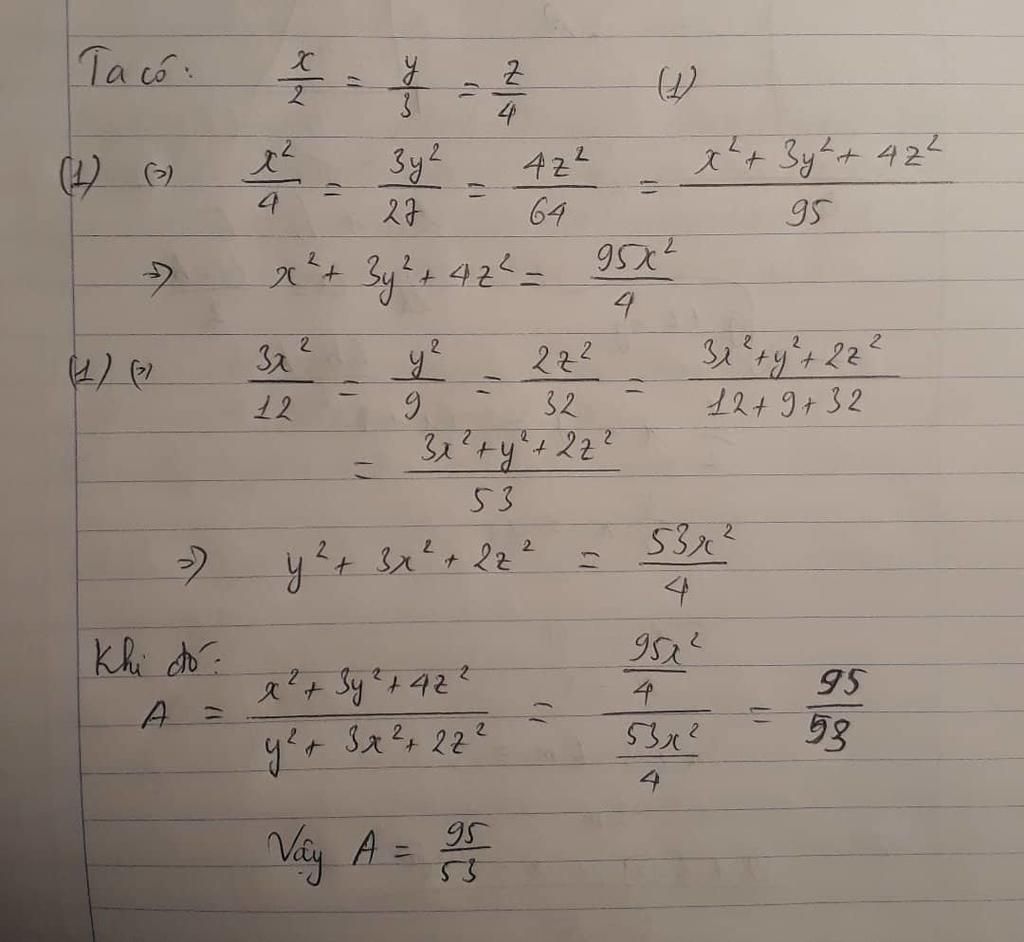 Ta có: x/2 = y/3 = z/4 (1)
(1) (=) x²/4 = 3y²/27 = 4z²/64 = (x² + 3y² + 4z²)/95
=> x² + 3y² + 4z² = 95x²/4
(1) (=) 3x²/12 = y²/9 = 2z²/32 = (3x² + y² + 2z²)/(12 + 9 + 32)
= (3x² + y² + 2z²)/53
=> y² + 3x² + 2z² = 53x²/4
Khi đó:
A = (x² + 3y² + 4z²)/(y² + 3x² + 2z²) = (95x²/4)/(53x²/4) = 95/53
Vậy A = 95/53